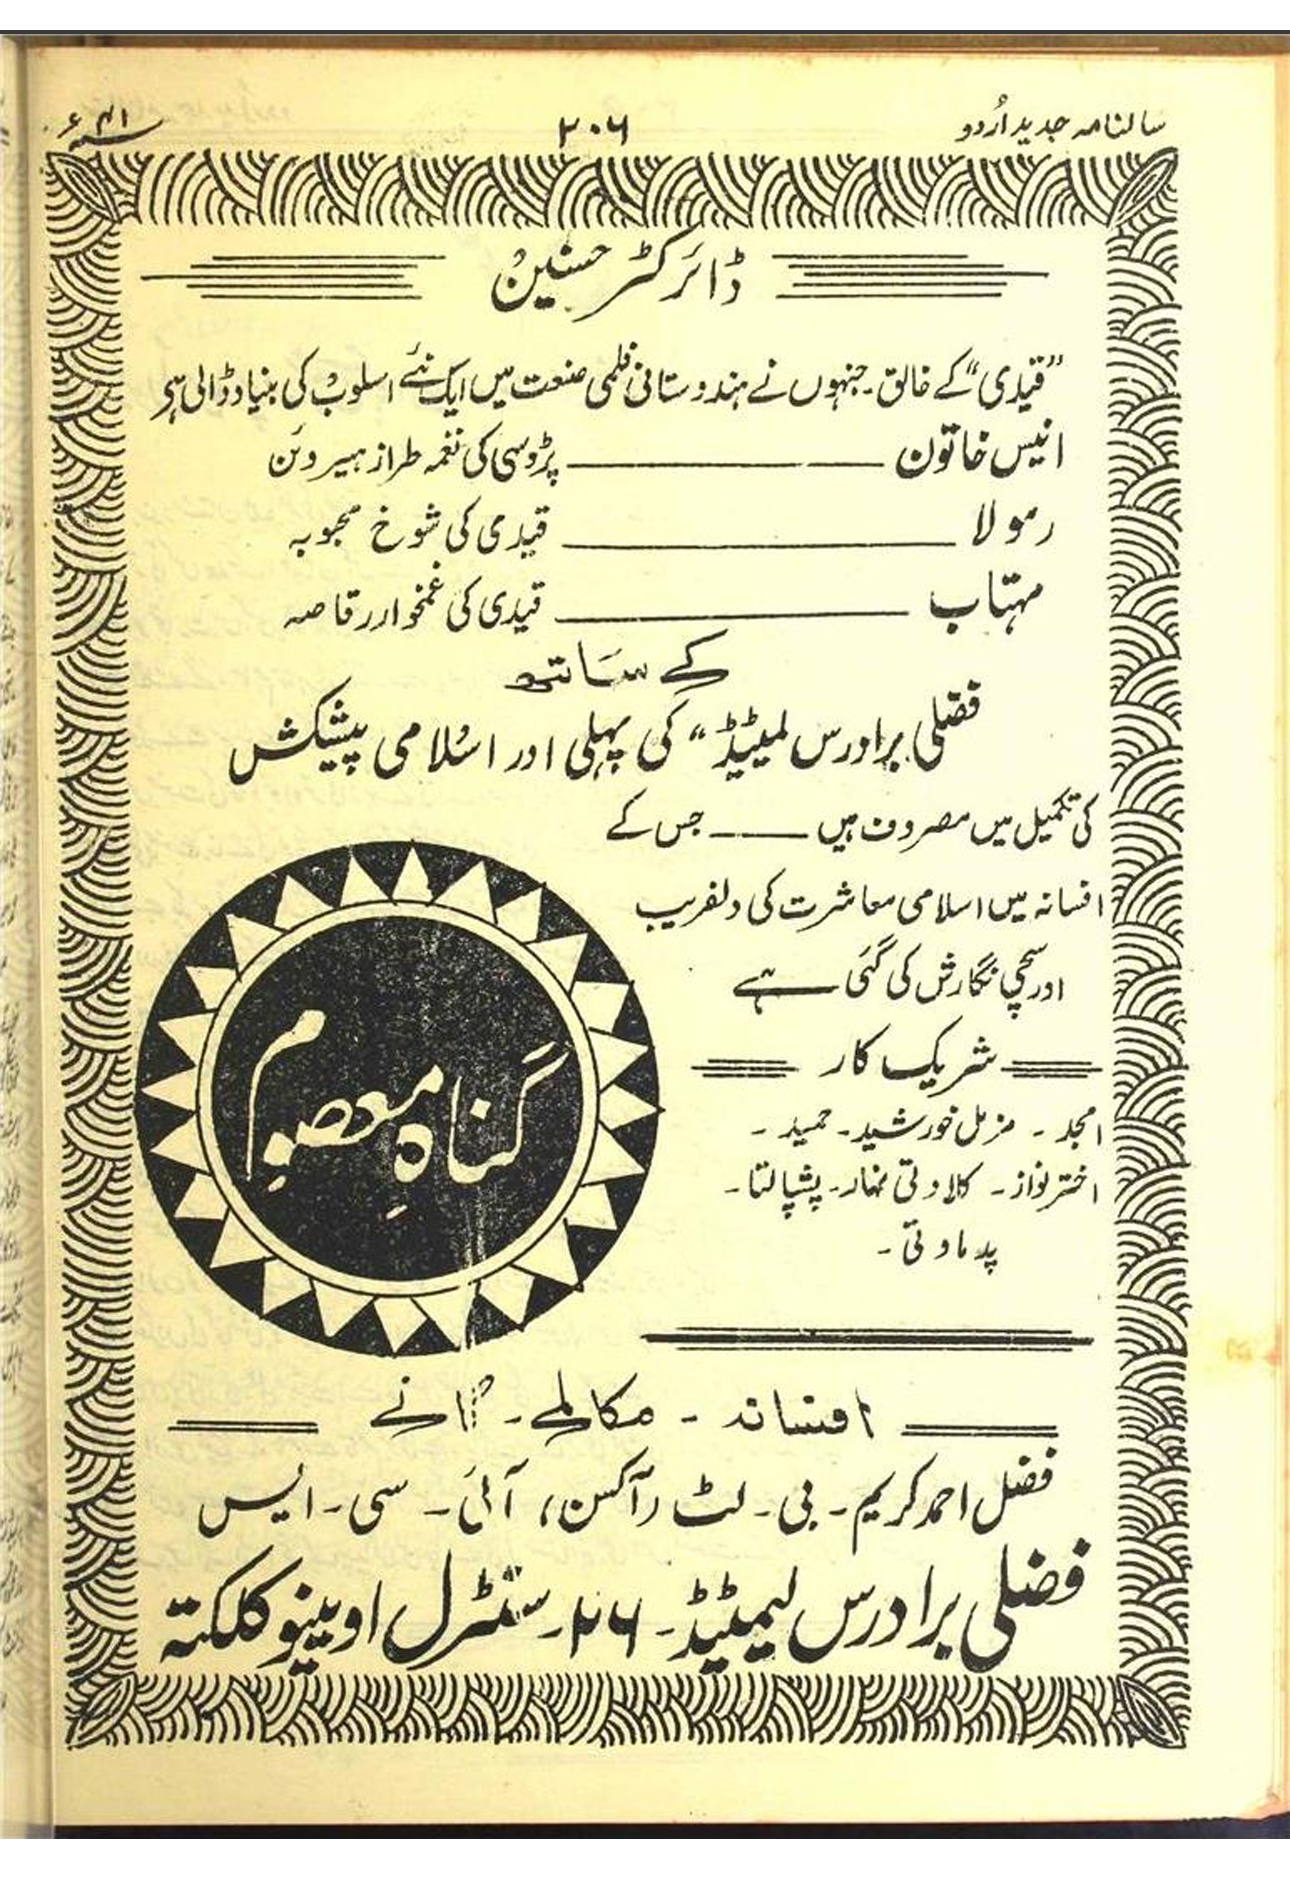 سالنامہ جدید اُردو
۲۰۶
سنہ ۴۱ء
ڈائرکٹر حسنین
"قیدی" کے خالق۔ جنہوں نے ہندوستانی فلمی صنعت میں ایک نئے اسلوب کی بنیاد ڈالی ہے
انیس خاتون ——— پڑوسی کی نغمہ طراز ہیروئن
رمولا ——— قیدی کی شوخ محبوبہ
مہتاب ——— قیدی کی غمخوار رقاصہ
کے ساتھ
فضلی برادرس لمیٹیڈ" کی پہلی اور اسلامی پیشکش
کی تکمیل میں مصروف ہیں ——— جس کے
افسانہ میں اسلامی معاشرت کی دلفریب
اور سچی نگارش کی گئی ہے
شریک کار
امجد ۔ مزمل خورشید۔ حمید ۔
اختر نواز۔ کلاوتی نہار۔ پشپا لتا۔
پدماوتی ۔
گناہِ معصوم
افسانہ ۔ مکالمے ۔ گانے
فضل احمد کریم ۔ بی ۔ لٹ (آکسن) آئی ۔ سی ۔ ایس
فضلی برادرس لیمیٹیڈ۔ ۲۶۔ سنٹرل اوینو کلکتہ